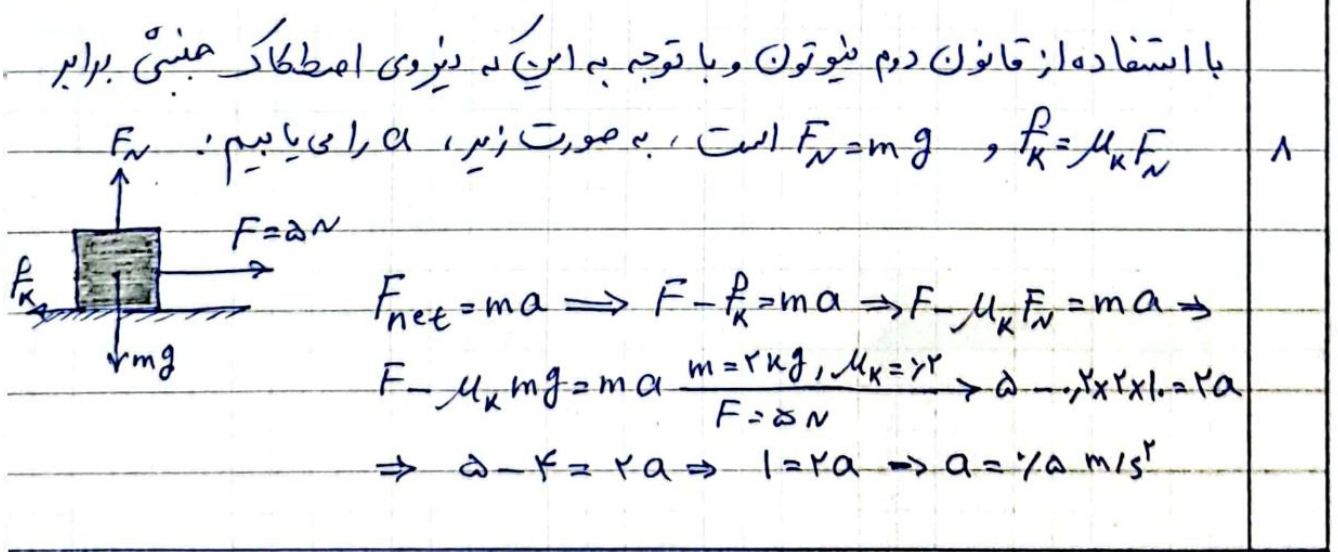 با استفاده از قانون دوم نیوتون و با توجه به این که نیروی اصطکاک جنبشی برابر
۸
f_K = μ_K F_N و F_N = mg است ، به صورت زیر ، a را می یابیم :
F_N
F = ۵N
f_K
mg
F_net = ma ⟹ F - f_K = ma ⇒ F - μ_K F_N = ma ⇒
F - μ_K mg = ma m = ۲kg , μ_K = ۰/۲ F = ۵N → ۵ - ۰/۲×۲×۱۰ = ۲a
⇒ ۵ - ۴ = ۲a ⇒ ۱ = ۲a ⇒ a = ۰/۵ m/s²